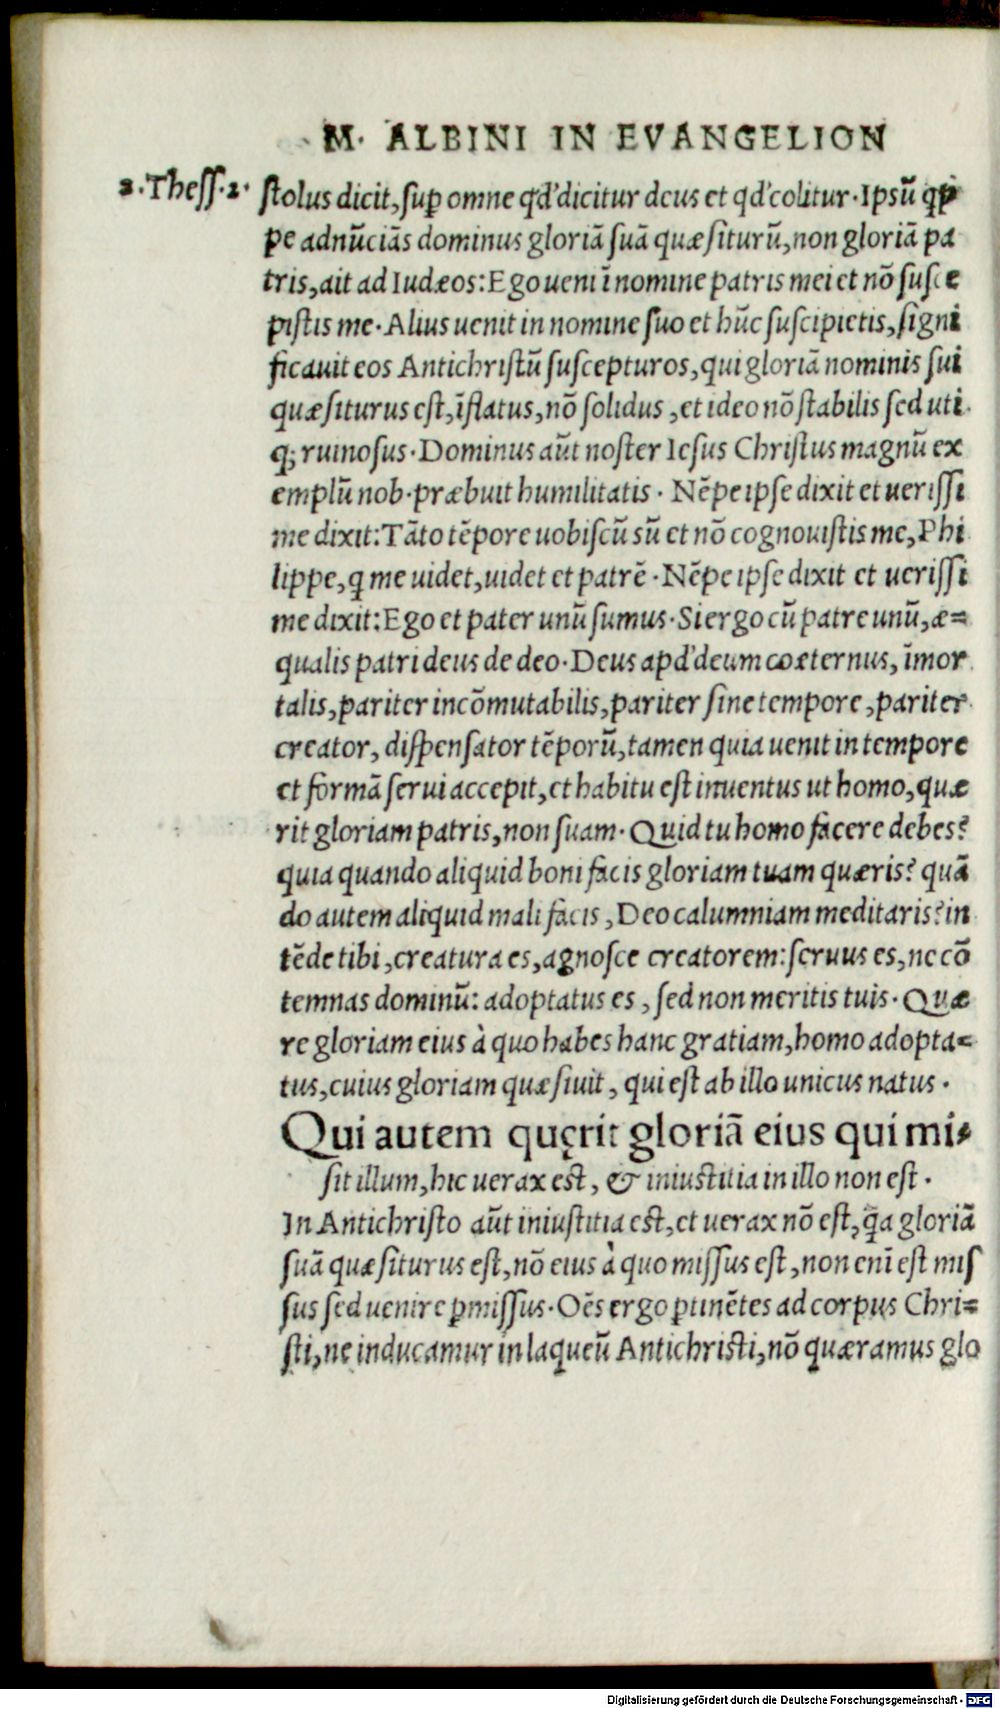 M. ALBINI IN EVANGELION
2. Thess. 2.
stolus dicit, suꝑ omne qd' dicitur deus et qd' colitur. Ipsū qp
pe adnūciās dominus gloriā suā quæsiturū, non gloriā pa
tris, ait ad Iudæos: Ego ueni ī nomine patris mei et nō susce
pistis me. Alius uenit in nomine suo et hūc suscipietis, signi
ficauit eos Antichristū suscepturos, qui gloriā nominis sui
quæsiturus est, īflatus, nō solidus, et ideo nō stabilis sed uti
q; ruinosus. Dominus aūt noster Iesus Christus magnū ex
emplū nob. præbuit humilitatis. Nēpe ipse dixit et uerissi
me dixit: Tāto tēpore uobiscū sū et nō cognouistis me, Phi
lippe, q me uidet, uidet et patrē. Nēpe ipse dixit et uerissi
me dixit: Ego et pater unū sumus. Si ergo cū patre unū, æ=
qualis patri deus de deo. Deus apd' deum coæternus, īmor
talis, pariter incōmutabilis, pariter sine tempore, pariter
creator, dispensator tēporū, tamen quia uenit in tempore
et formā serui accepit, et habitu est inuentus ut homo, quæ
rit gloriam patris, non suam. Quid tu homo facere debes?
quia quando aliquid boni facis gloriam tuam quæris? quā
do autem aliquid mali facis, Deo calumniam meditaris? in
tēde tibi, creatura es, agnosce creatorem: seruus es, ne cō
temnas dominū: adoptatus es, sed non meritis tuis. Quæ
re gloriam eius à quo habes hanc gratiam, homo adopta=
tus, cuius gloriam quæsiuit, qui est ab illo unicus natus.
Qui autem quęrit gloriā eius qui mi=
sit illum, hic uerax est, & iniustitia in illo non est.
In Antichristo aūt iniustitia est, et uerax nō est, qa gloriā
suā quæsiturus est, nō eius à quo missus est, non enī est mis
sus sed uenire ꝑmissus. Oēs ergo ꝑtinētes ad corpus Chri=
sti, ne inducamur in laqueū Antichristi, nō quæramus glo
Digitalisierung gefördert durch die Deutsche Forschungsgemeinschaft - DFG